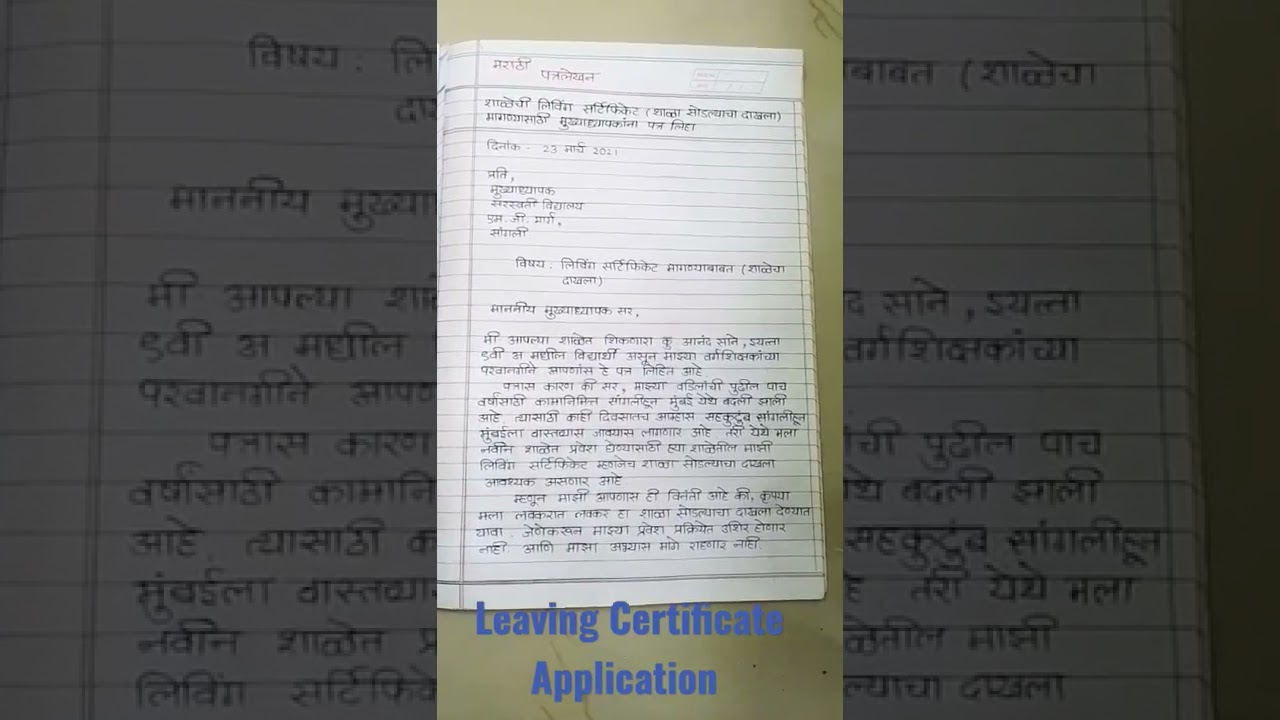 मराठी
पत्रलेखन
शाळेची लिविंग सर्टिफिकेट (शाळा सोडल्याचा दाखला)
मागण्यासाठी मुख्याध्यापकांना पत्र लिहा
दिनांक - 23 मार्च 2021
प्रति,
मुख्याध्यापक
सरस्वती विद्यालय
एम. जी. मार्ग,
सांगली
विषय . लिविंग सर्टिफिकेट मागण्याबाबत (शाळेचा
दाखला)
माननीय मुख्याध्यापक सर,
मी आपल्या शाळेत शिकणारा कु आनंद साने, इयत्ता
९वी अ मधील विद्यार्थी असून माझ्या वर्गशिक्षकांच्या
परवानगीने आपणांस हे पत्र लिहित आहे.
पत्रास कारण की सर, माझ्या वडिलांची पुढील पाच
वर्षांसाठी कामानिमित्त सांगलीहून मुंबई येथे बदली झाली
आहे. त्यासाठी काही दिवसातच आम्हास सहकुटुंब सांगलीहून
मुंबईला वास्तव्यास जाव्यास लागणार आहे तरी येथे मला
नवीन शाळेत प्रवेश घेण्यासाठी ह्या शाळेतील माझी
लिविंग सर्टिफिकेट म्हणजेच शाळा सोडल्याचा दाखला
आवश्यक असणार आहे
म्हणून माझी आपणास ही विनंती आहे की, कृपया
मला लवकरात लवकर हा शाळा सोडल्याचा दाखला देण्यात
यावा. जेणेकरून माझ्या प्रवेश प्रक्रियेत उशिर होणार
नाही आणि माझा अभ्यास मागे राहणार नाही.
Leaving Certificate
Application